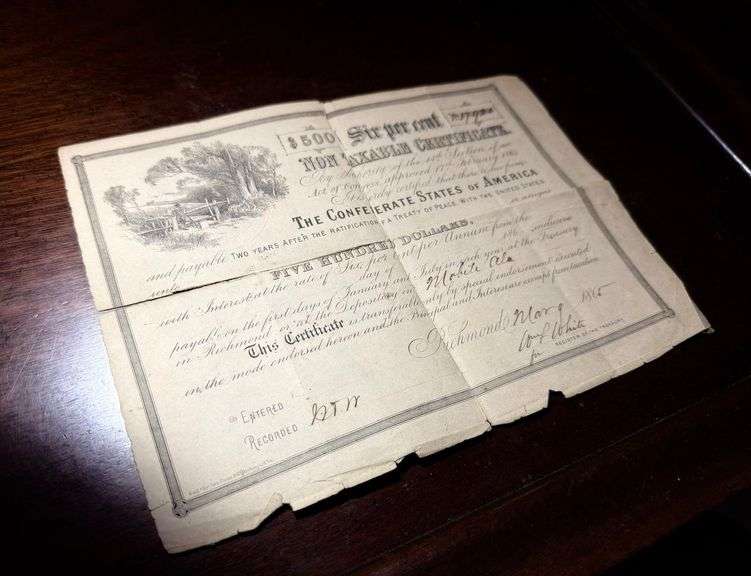 $500
Six per cent
NON TAXABLE CERTIFICATE
By authority of the 14th Section of an
Act of Congress approved February 1864
hereby certified that there
THE CONFEDERATE STATES OF AMERICA
and payable TWO YEARS AFTER THE RATIFICATION OF A TREATY OF PEACE WITH THE UNITED STATES
unto
FIVE HUNDRED DOLLARS,
with Interest at the rate of Six per cent per Annum from the
day of 186 inclusive
payable on the first days of January and July in each year at the Treasury
in Richmond or at the Depository at Mobile Ala
This Certificate is transferable only by special endorsement executed
in the mode endorsed hereon and the Principal and Interest are exempt from taxation
Richmond 1865
for
REGISTER OF THE TREASURY
ENTERED
RECORDED